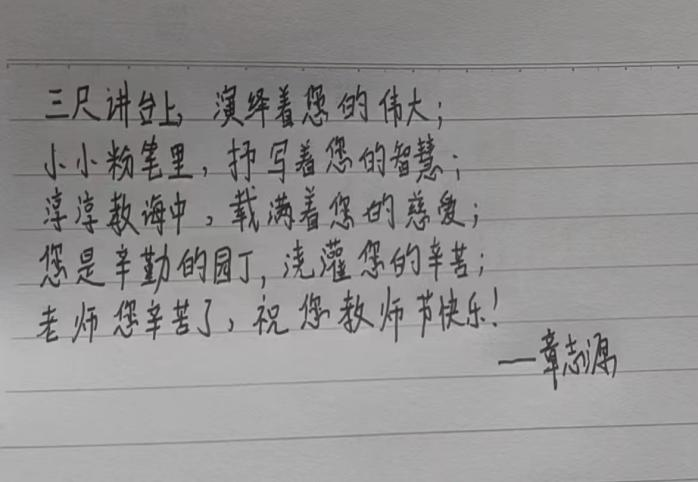 三尺讲台上，演绎着您的伟大；
小小粉笔里，抒写着您的智慧；
淳淳教诲中，载满着您的慈爱；
您是辛勤的园丁，浇灌您的辛苦；
老师您辛苦了，祝您教师节快乐！
——章志源